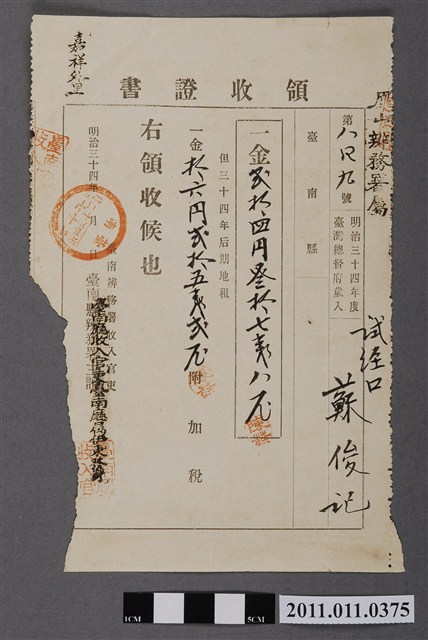 領收證書
鳳山辨務署屬
試經口
蘇俊記
第八只九號
明治三十四年度
臺灣總督府歲入
臺南縣
一金貳拾四円叁拾七戔八厘
但三十四年后期地租
一金拾六円貳拾五戔貳厘 附加税
右領收候也
明治三十四年 月 日
南辨務署收入官吏
嘉祥外里
1CM
5CM
2011.011.0375